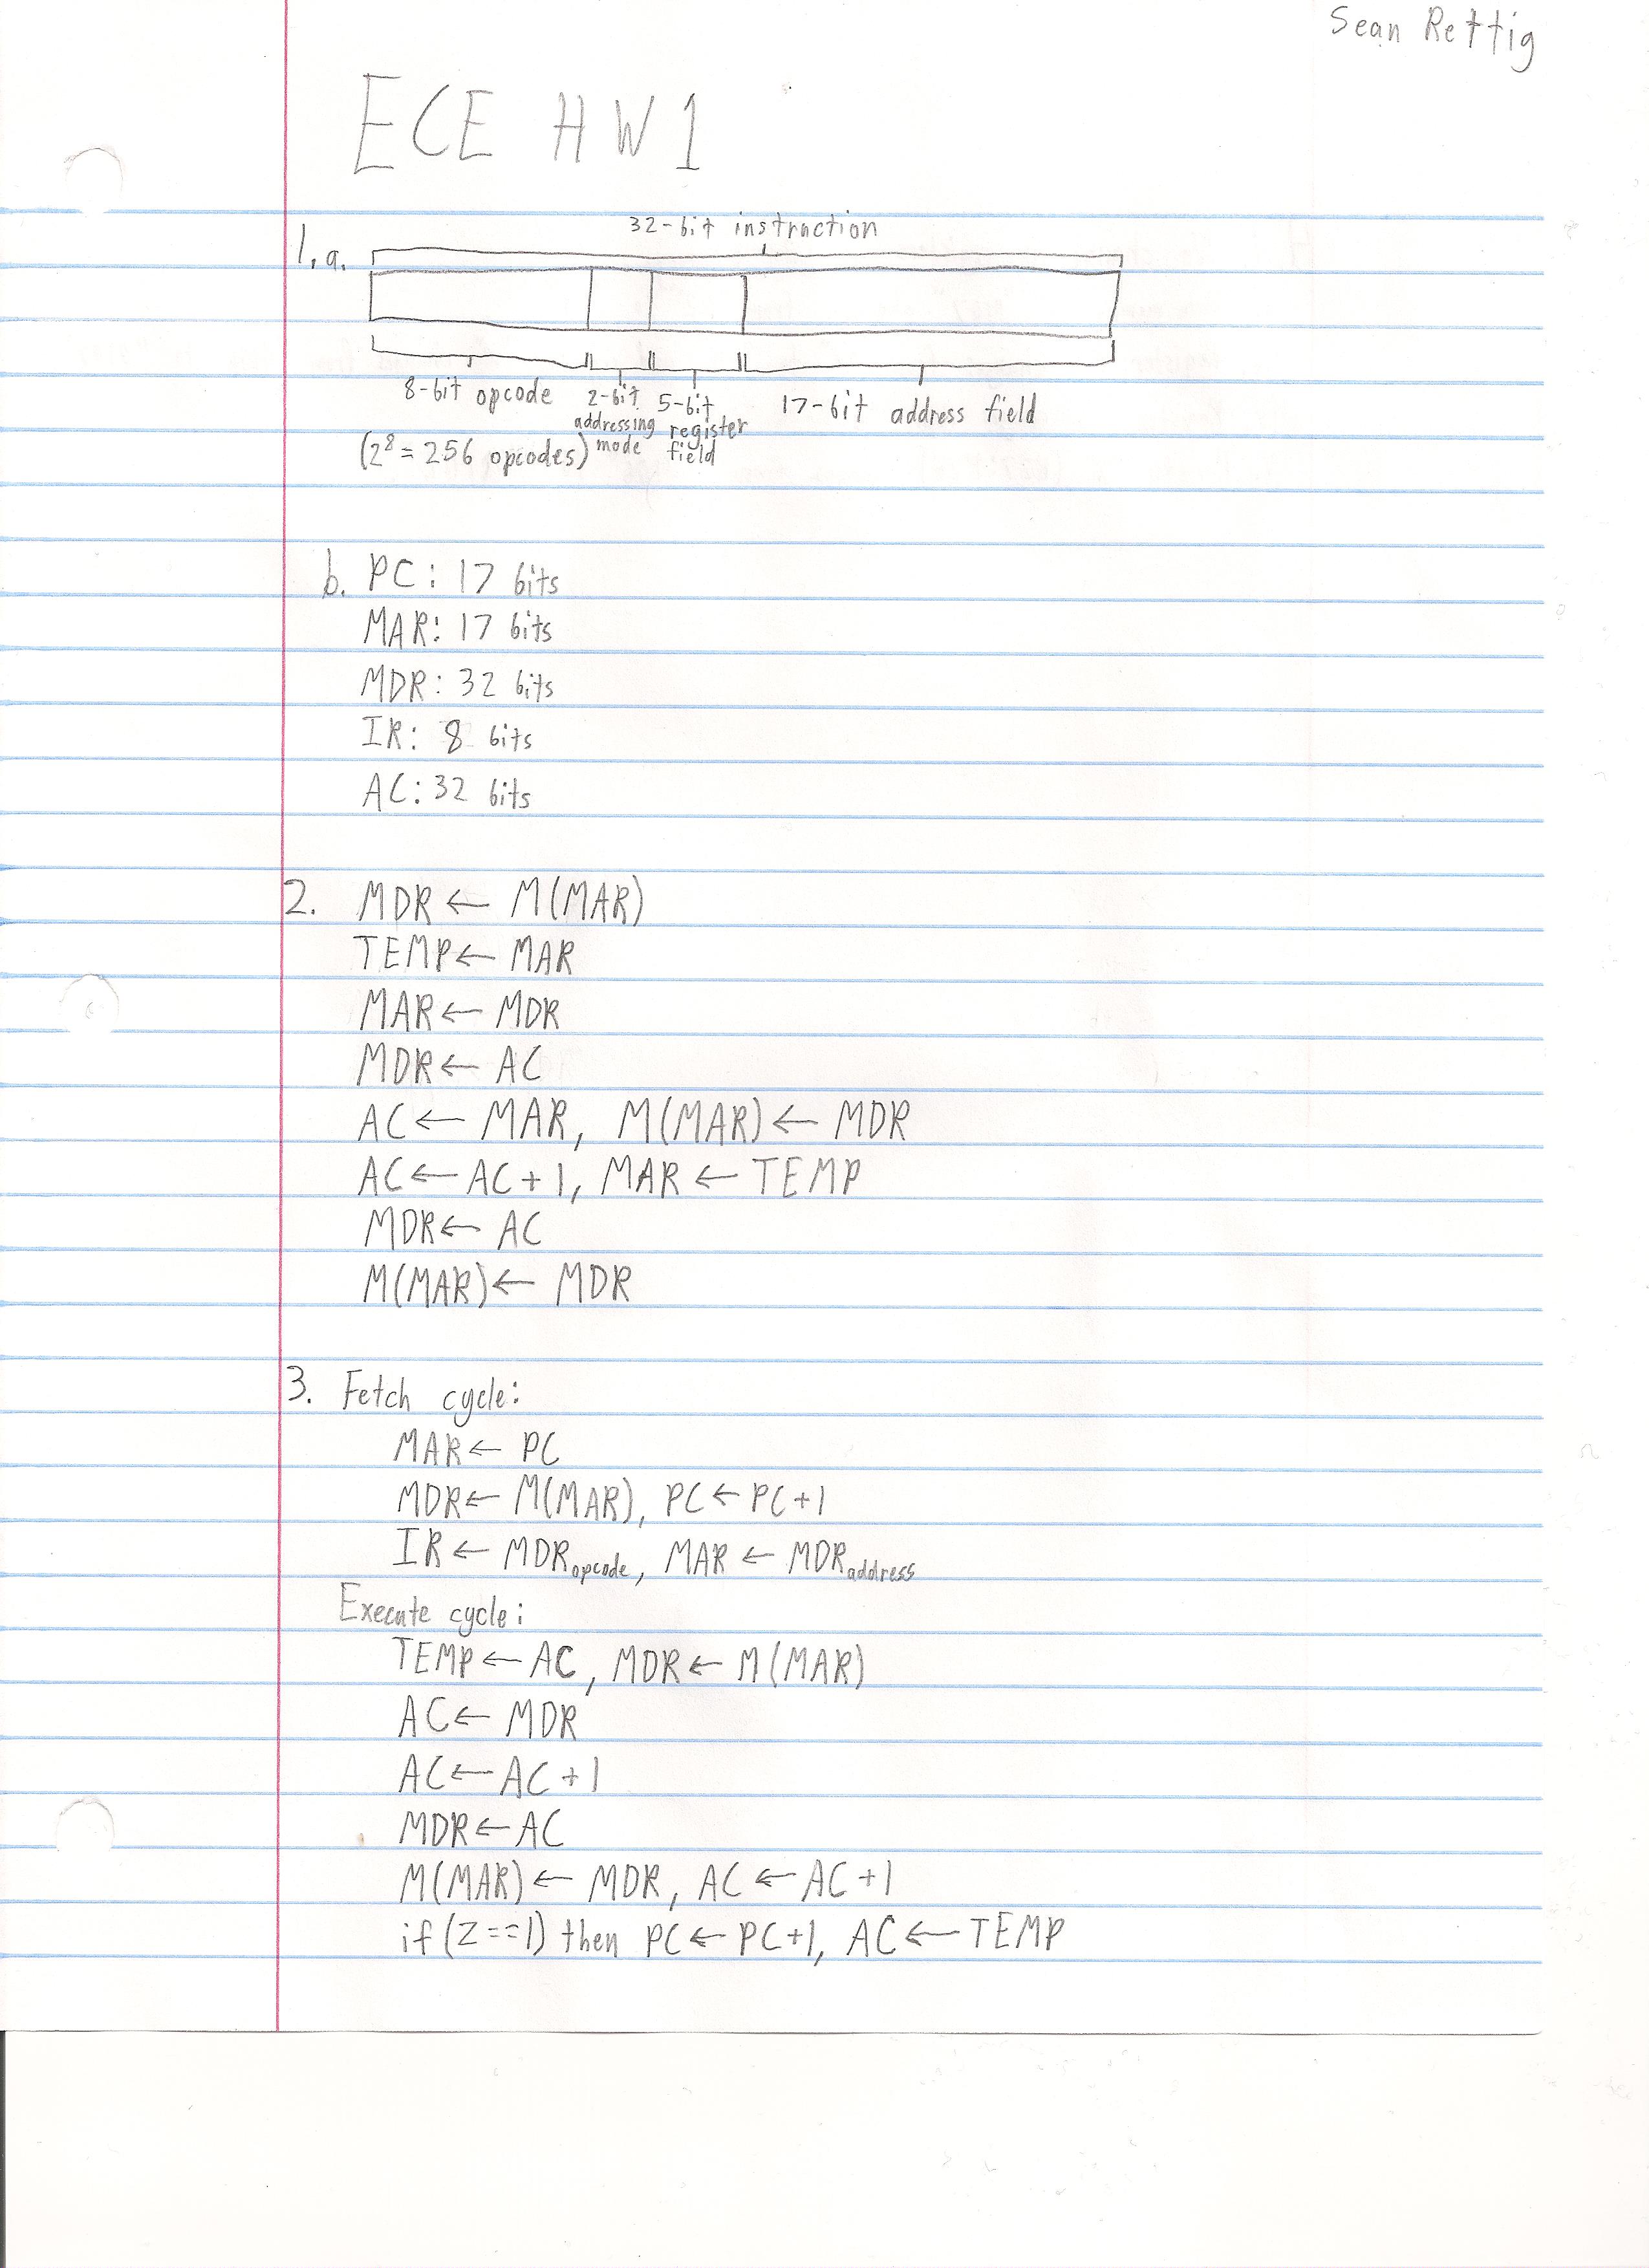 Sean Rettig
ECE HW1
32-bit instruction
1. a.
8-bit opcode 2-bit 5-bit 17-bit address field
addressing register
(2⁸ = 256 opcodes) mode field
b. PC: 17 bits
MAR: 17 bits
MDR: 32 bits
IR: 8 bits
AC: 32 bits
2. MDR ← M(MAR)
TEMP ← MAR
MAR ← MDR
MDR ← AC
AC ← MAR, M(MAR) ← MDR
AC ← AC + 1, MAR ← TEMP
MDR ← AC
M(MAR) ← MDR
3. Fetch cycle:
MAR ← PC
MDR ← M(MAR), PC ← PC + 1
IR ← MDRopcode, MAR ← MDRaddress
Execute cycle:
TEMP ← AC, MDR ← M(MAR)
AC ← MDR
AC ← AC + 1
MDR ← AC
M(MAR) ← MDR, AC ← AC + 1
if (Z==1) then PC ← PC+1, AC ← TEMP